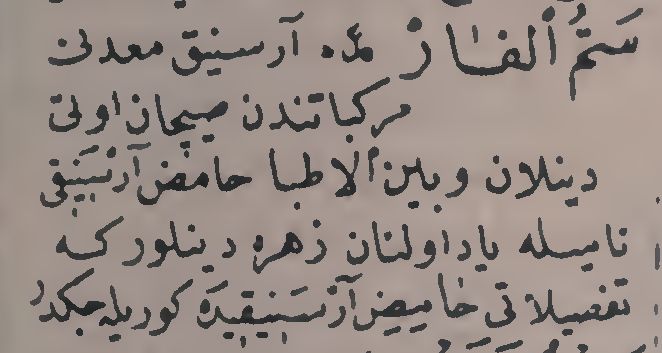 سَمُّ الفَار ز مذ. آرسنيق معدنى
مركباتندن صيچان اوتى
دينلان وبين الاطبا حامض آرسَنِيقِى
ناميله ياد اولنان زهره دينلور كه
تفصيلاتى حاميض آرسَنيقِيدَه كوريله جكدر